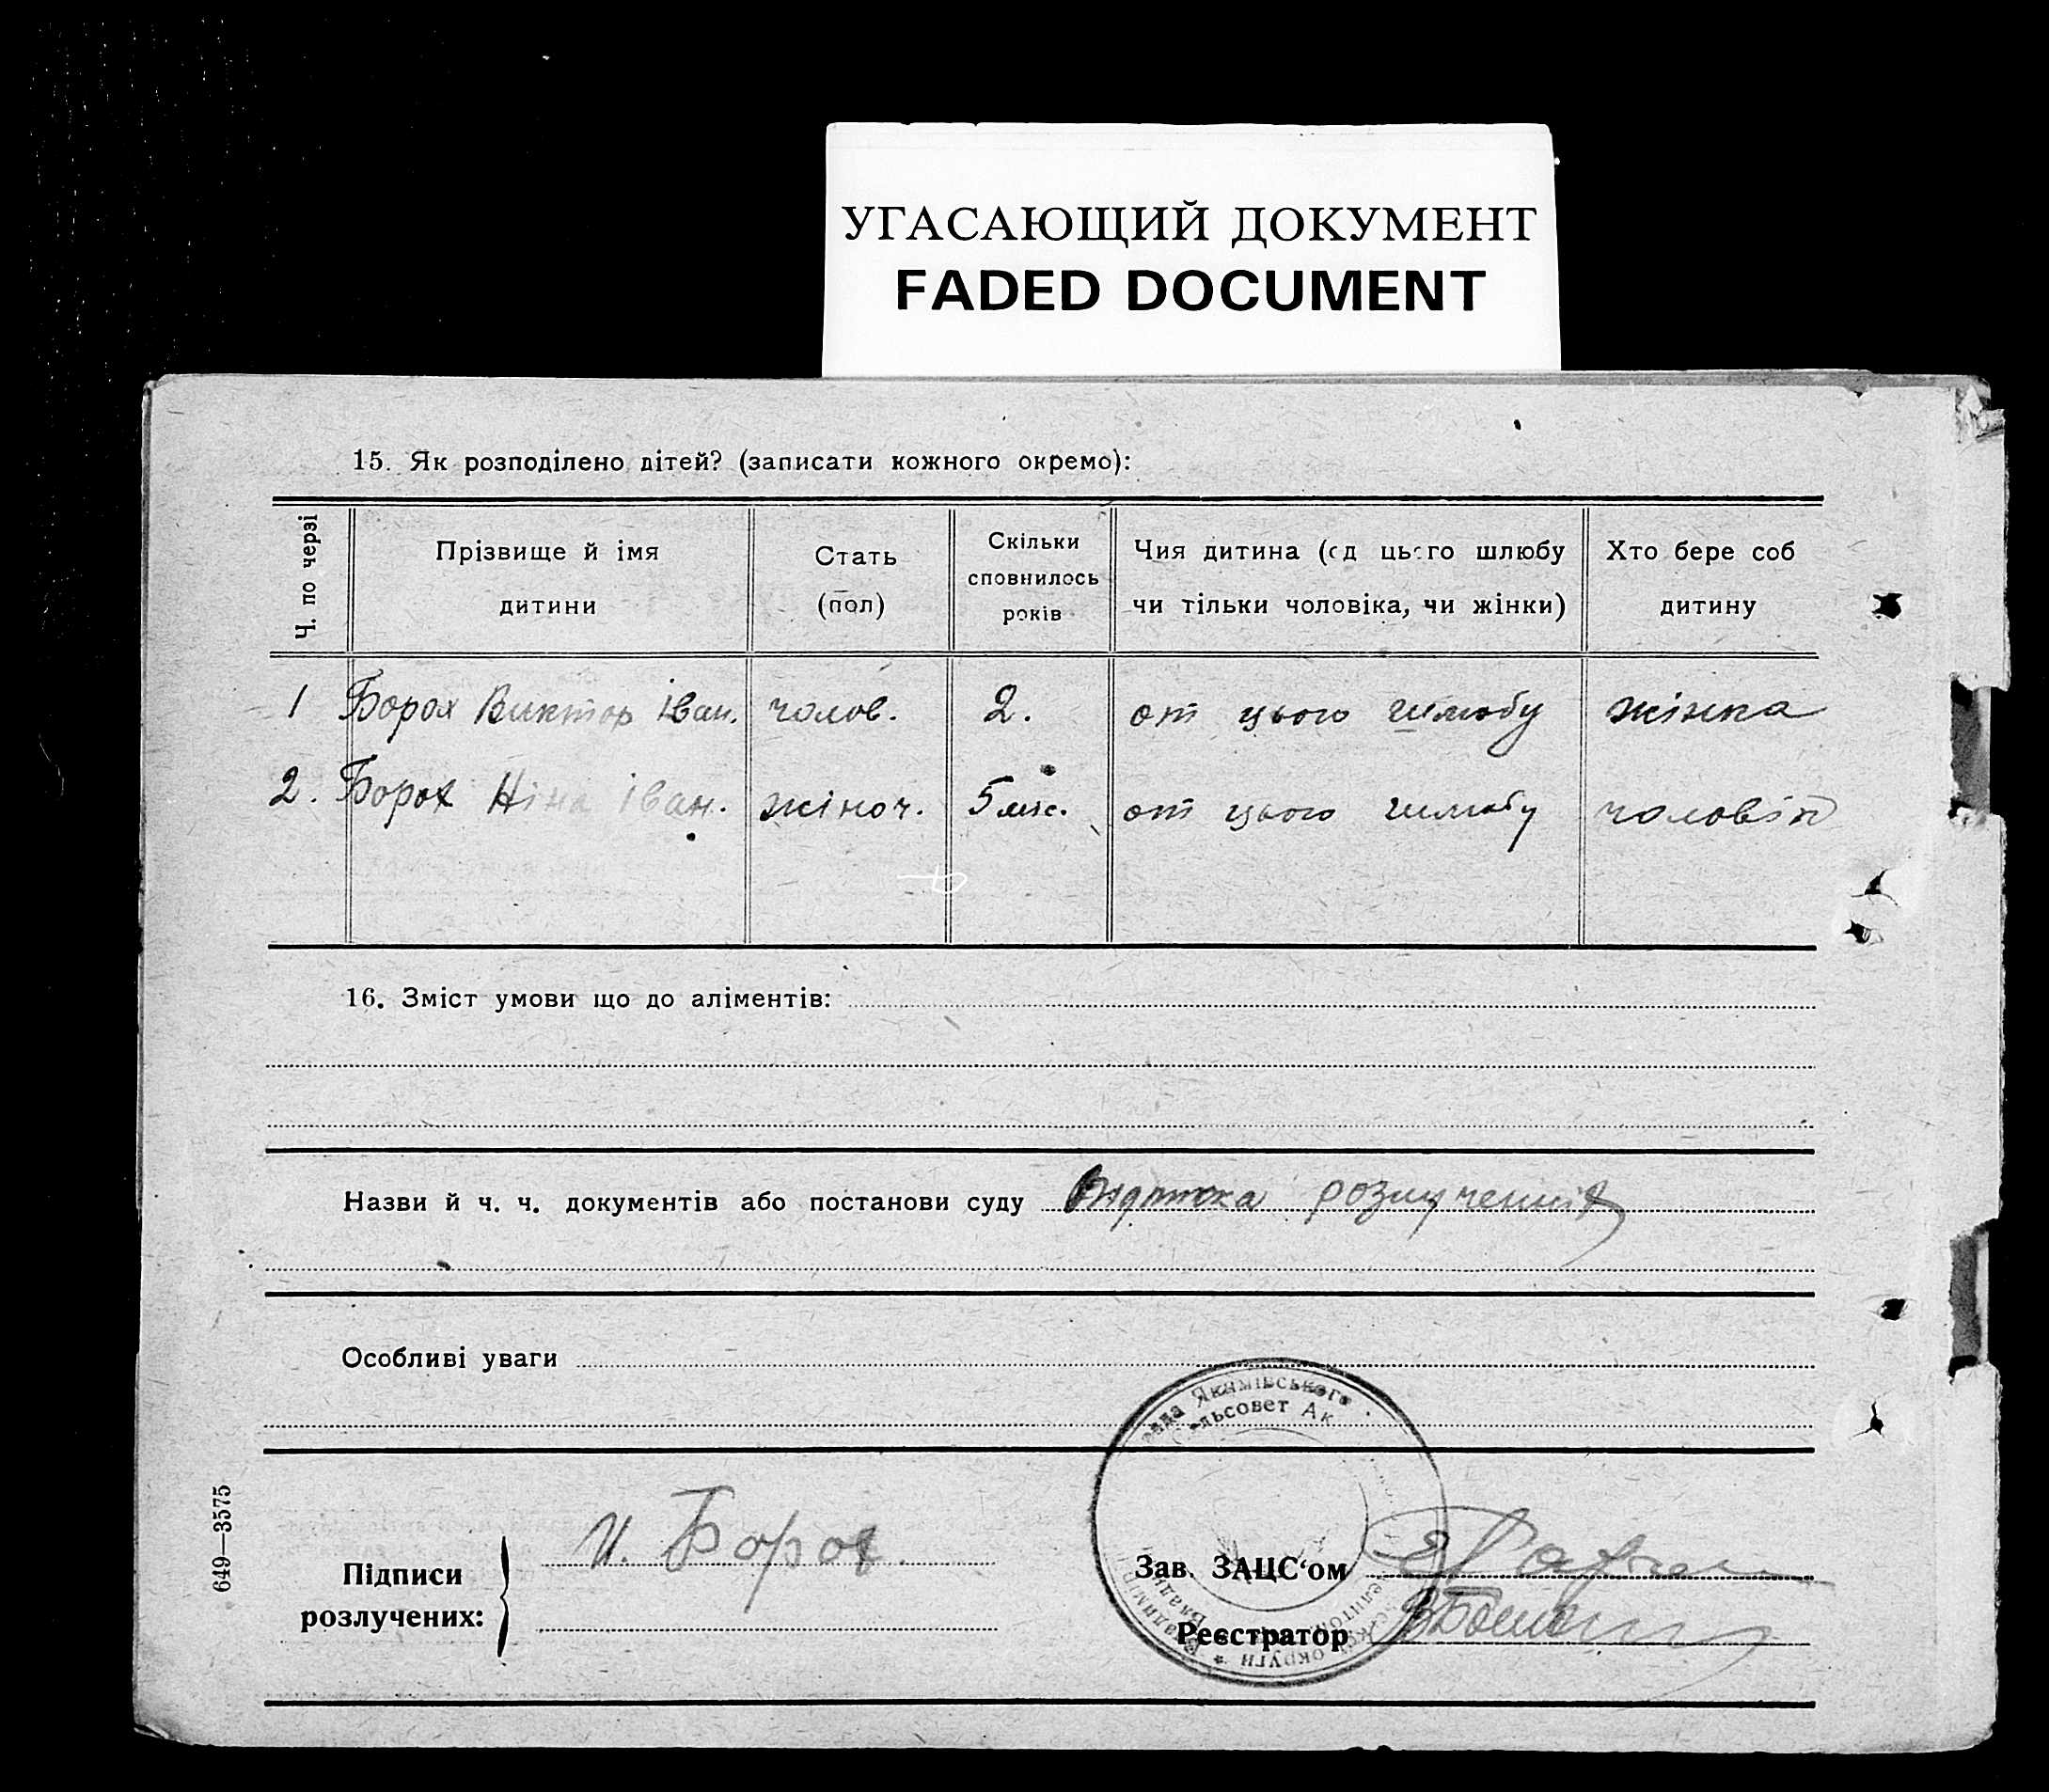 УГАСАЮЩИЙ ДОКУМЕНТ
FADED DOCUMENT
15. Як розподілено дітей? (записати кожного окремо):
Ч. по черзі
Прізвище й імя дитини
Стать (пол)
Скільки сповнилось років
Чия дитина (од цього шлюбу чи тільки чоловіка, чи жінки)
Хто бере соб дитину
1 Борох Виктор Іван. чолов. 2. от цього шлюбу жінка
2. Борох Ніна Іван. жіноч. 5 міс. от цього шлюбу чоловік
16. Зміст умови що до аліментів:
Назви й ч. ч. документів або постанови суду розлучення
Особливі уваги
ада Якимівського
льсовет Ак
округи
649—3575
Підписи розлучених:
И. Борох
Зав. ЗАЦС'ом
Реєстратор